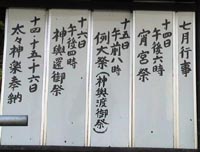 七月行事
十四日
午後六時
宵宮祭
十五日
午前八時
例大祭(神輿渡御祭)
十六日
午後四時
神輿還御祭
十四・十五・十六日
太々神楽奉納